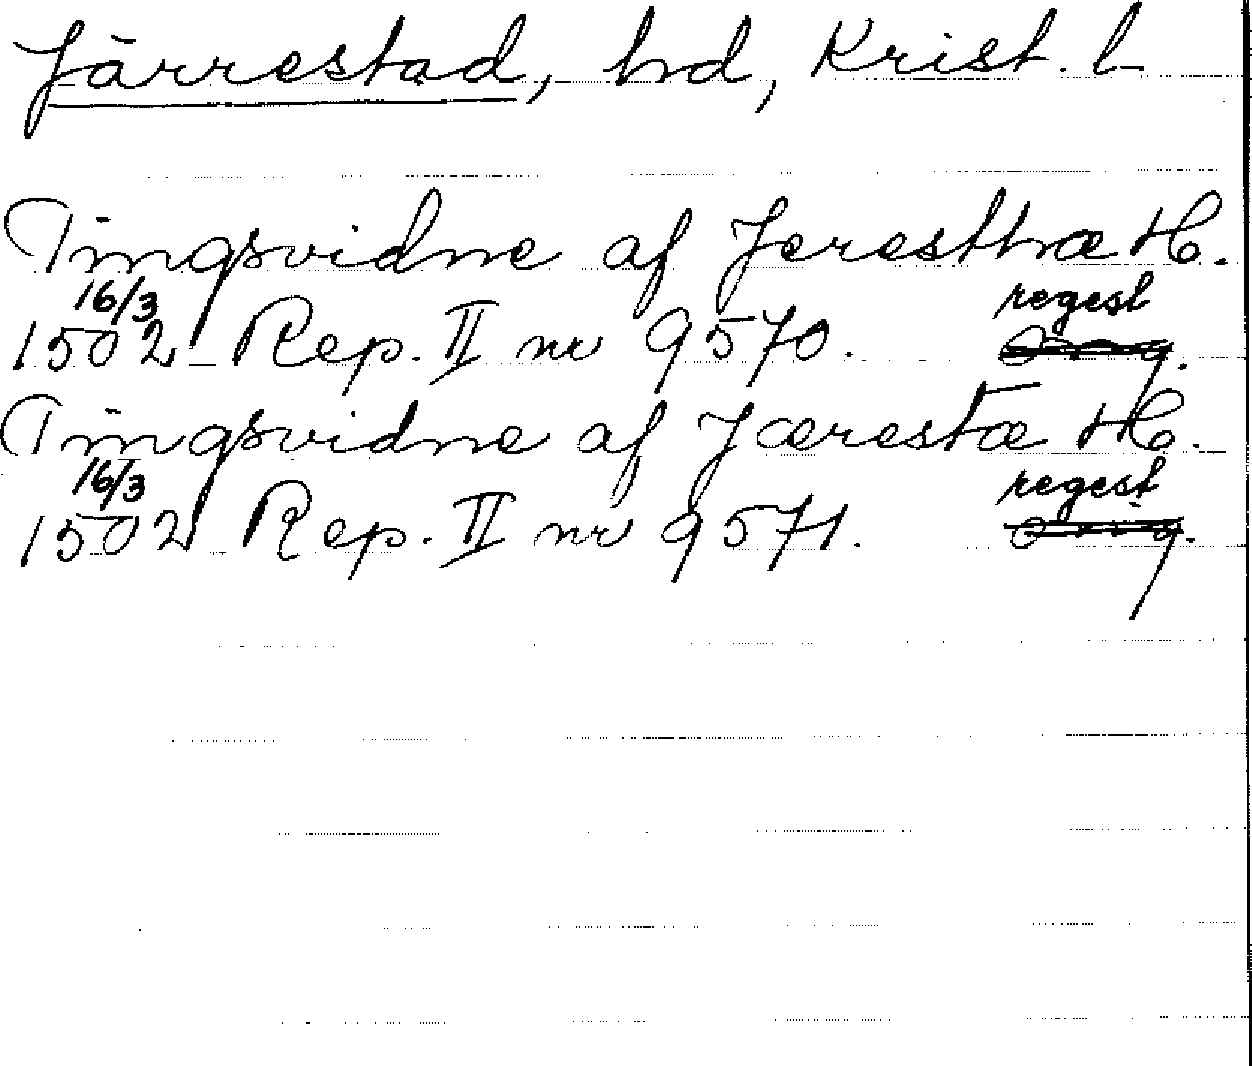 Järrestad, hd, Krist. l
Tingsvidne af Jeresthæ H.
16/3 regest
1502 Rep. II nr 9570. orig.
Tingsvidne af Jærestæ H.
16/3 regest
1502 Rep. II nr 9571. orig.